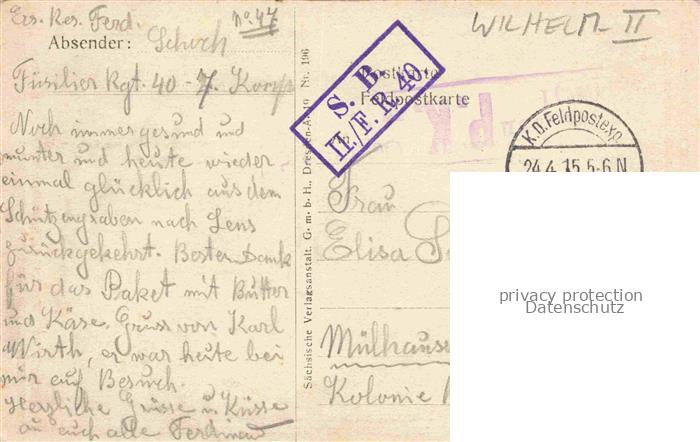 Ers. Res. Ferd. No. 47
Absender: Schoch
Füsilier Rgt. 40 - 7. Korps
Noch immer gesund und
munter und heute wieder
einmal glücklich aus dem
Schützengraben nach Lens
zurückgekehrt. Besten Dank
für das Paket mit Butter
und Käse. Gruss von Karl
Wirth, er war heute bei
mir auf Besuch.
Herzliche Grüsse u Küsse
an euch alle Ferdinand
Sächsische Verlagsanstalt, G. m. b. H., Dresden-A. 19 Nr. 196
WILHELM II
S. B.
II./F. R. 40.
Postkarte
Feldpostkarte
K.D. Feldpostexp.
24.4.15.5-6N
Frau
Elisa
Mülhause
Kolonie
privacy protection
Datenschutz